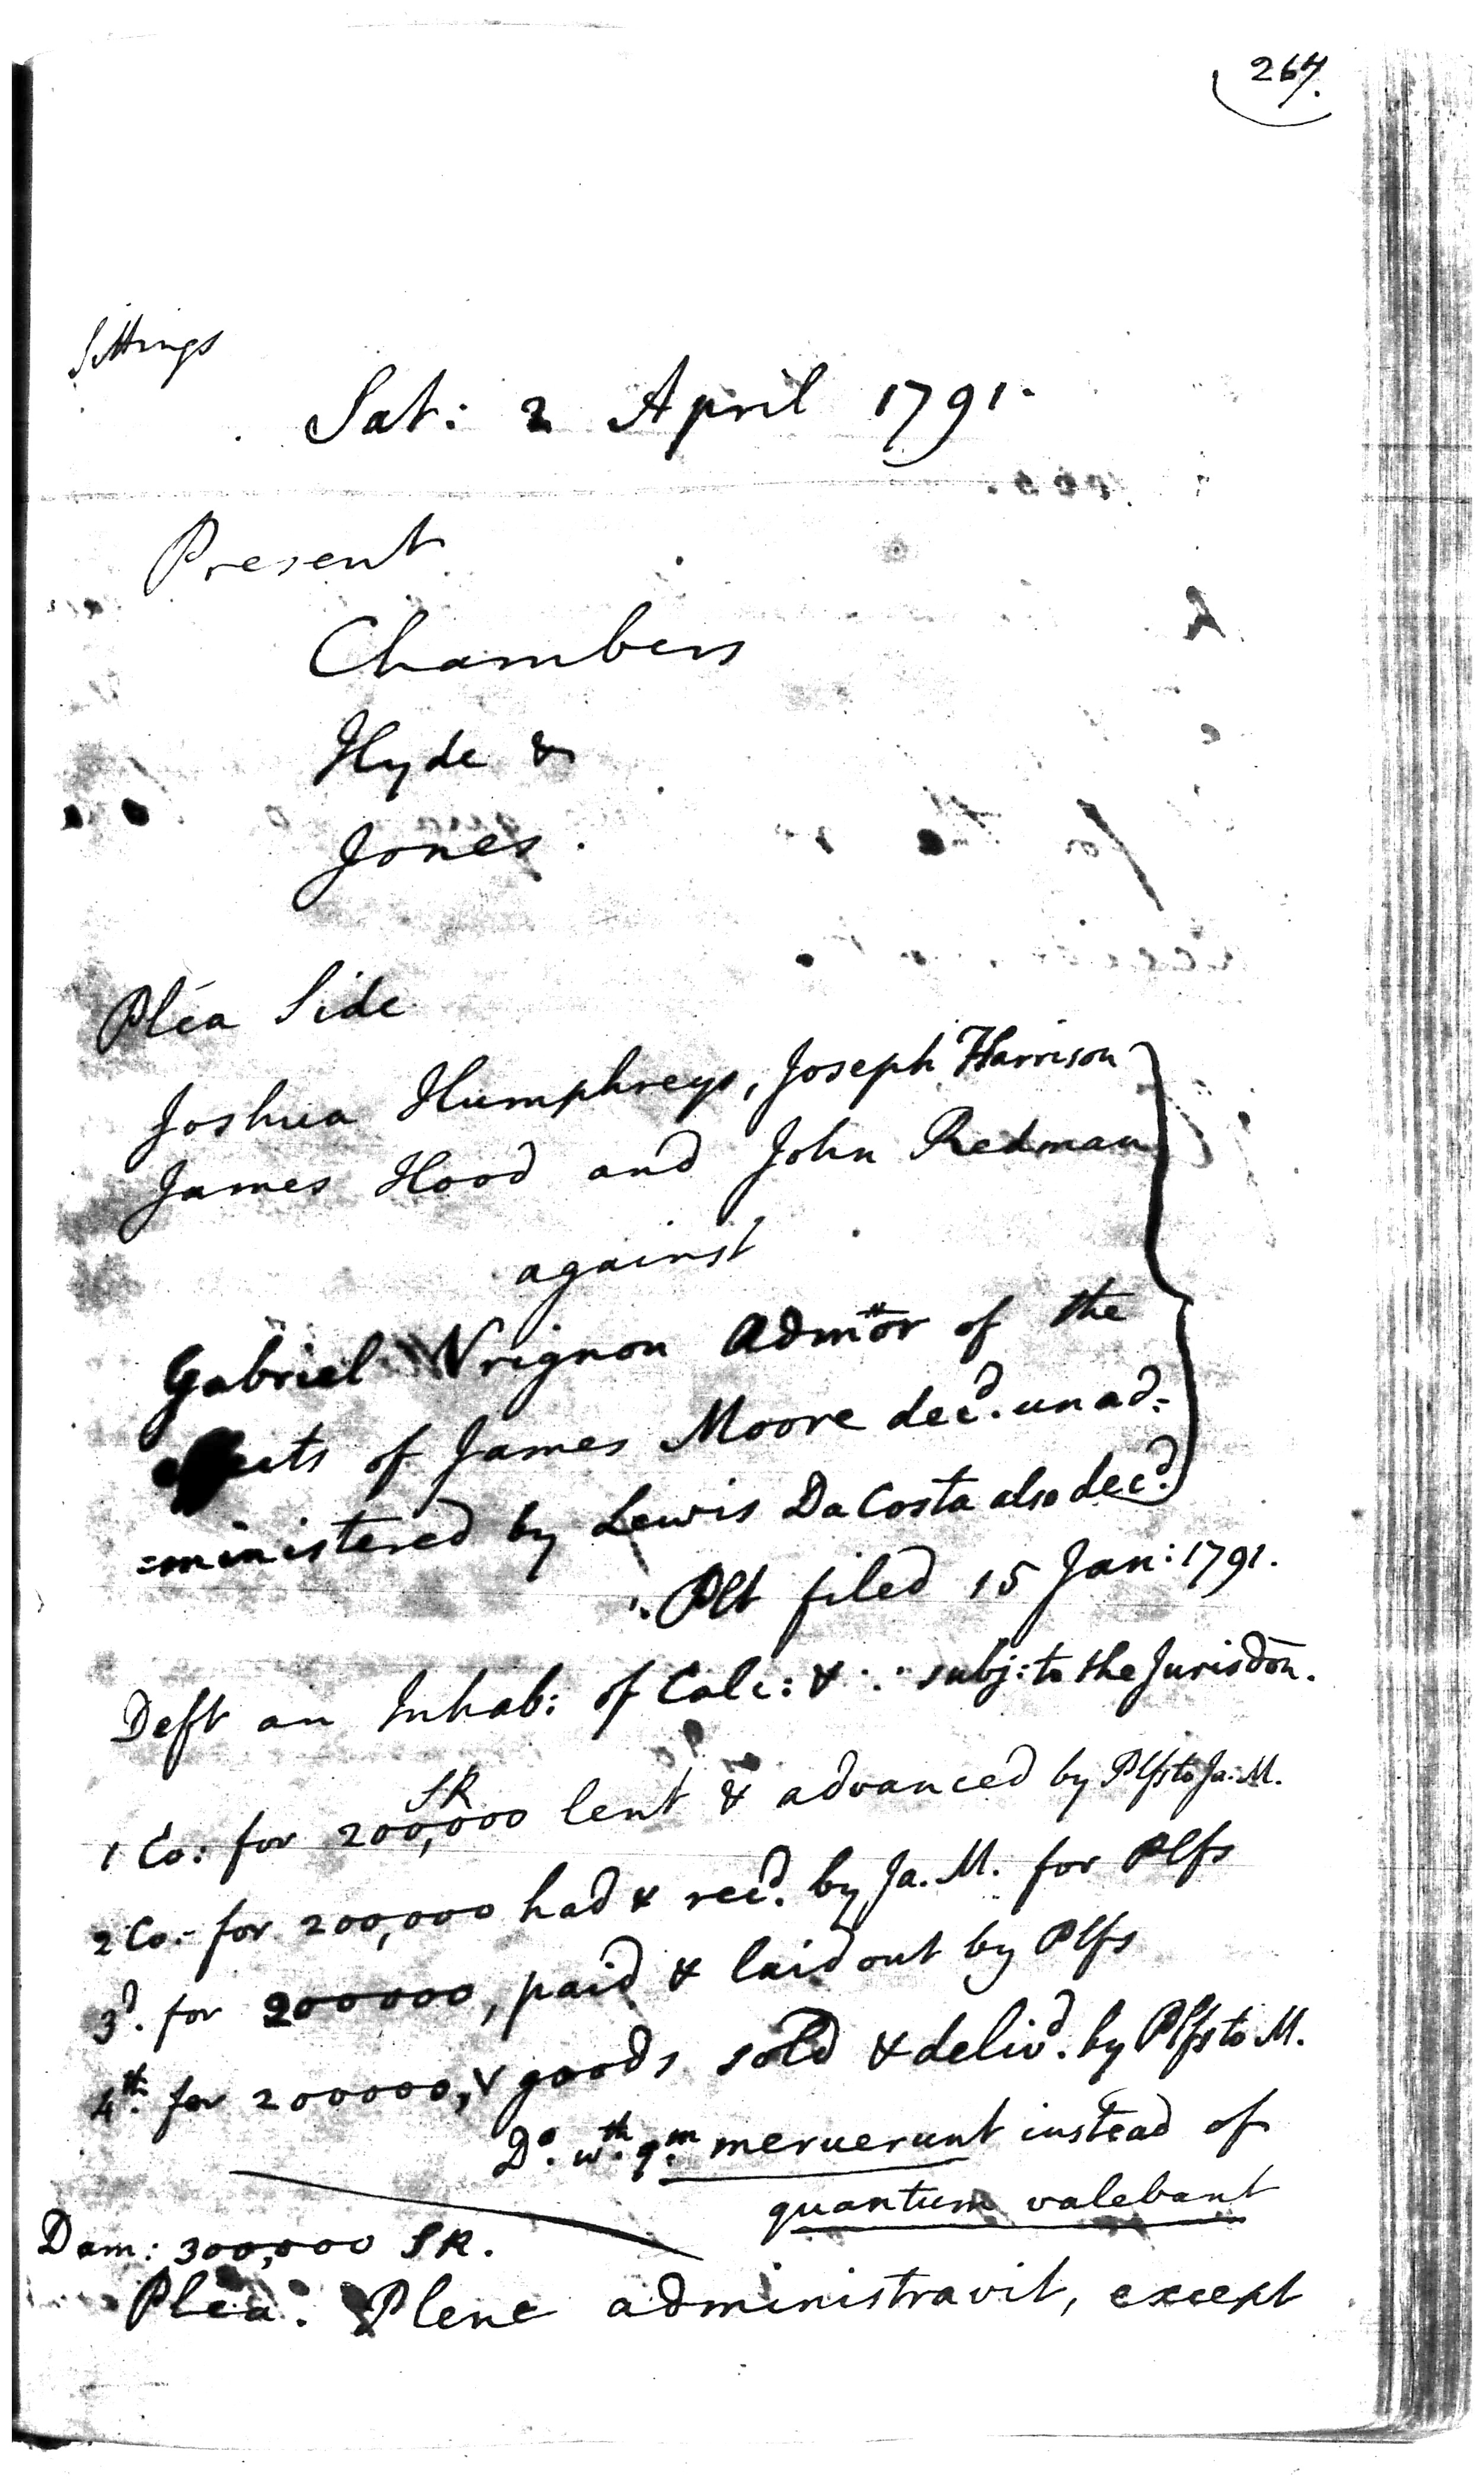 267.
Sittings
Sat: 2 April 1791.
Present
Chambers
Hyde &
Jones.
Plea Side
Joshua Humphreys, Joseph Harrison
James Hood and John Redman
against
Gabriel Vrignon Admor of the
of James Moore decd. unad=
=ministered by Lewis DaCosta also decd.
Plt filed 15 Jan: 1791.
Deft an Inhab: of Calc: & ∴ subj: to the Jurisdon.
SR
1 Co: for 200,000 lent & advanced by Plfs to Ja: M.
2 Co:- for 200,000 had & recd. by Ja. M. for Plfs
3d. for 200000, paid & laid out by Plfs
4th. for 200000, v goods sold & delivd. by Plfs to M.
Do. wth. qm. meruerunt instead of
quantum valebant
Dam: 300,000 SR.
Plea. Plene administravit, except